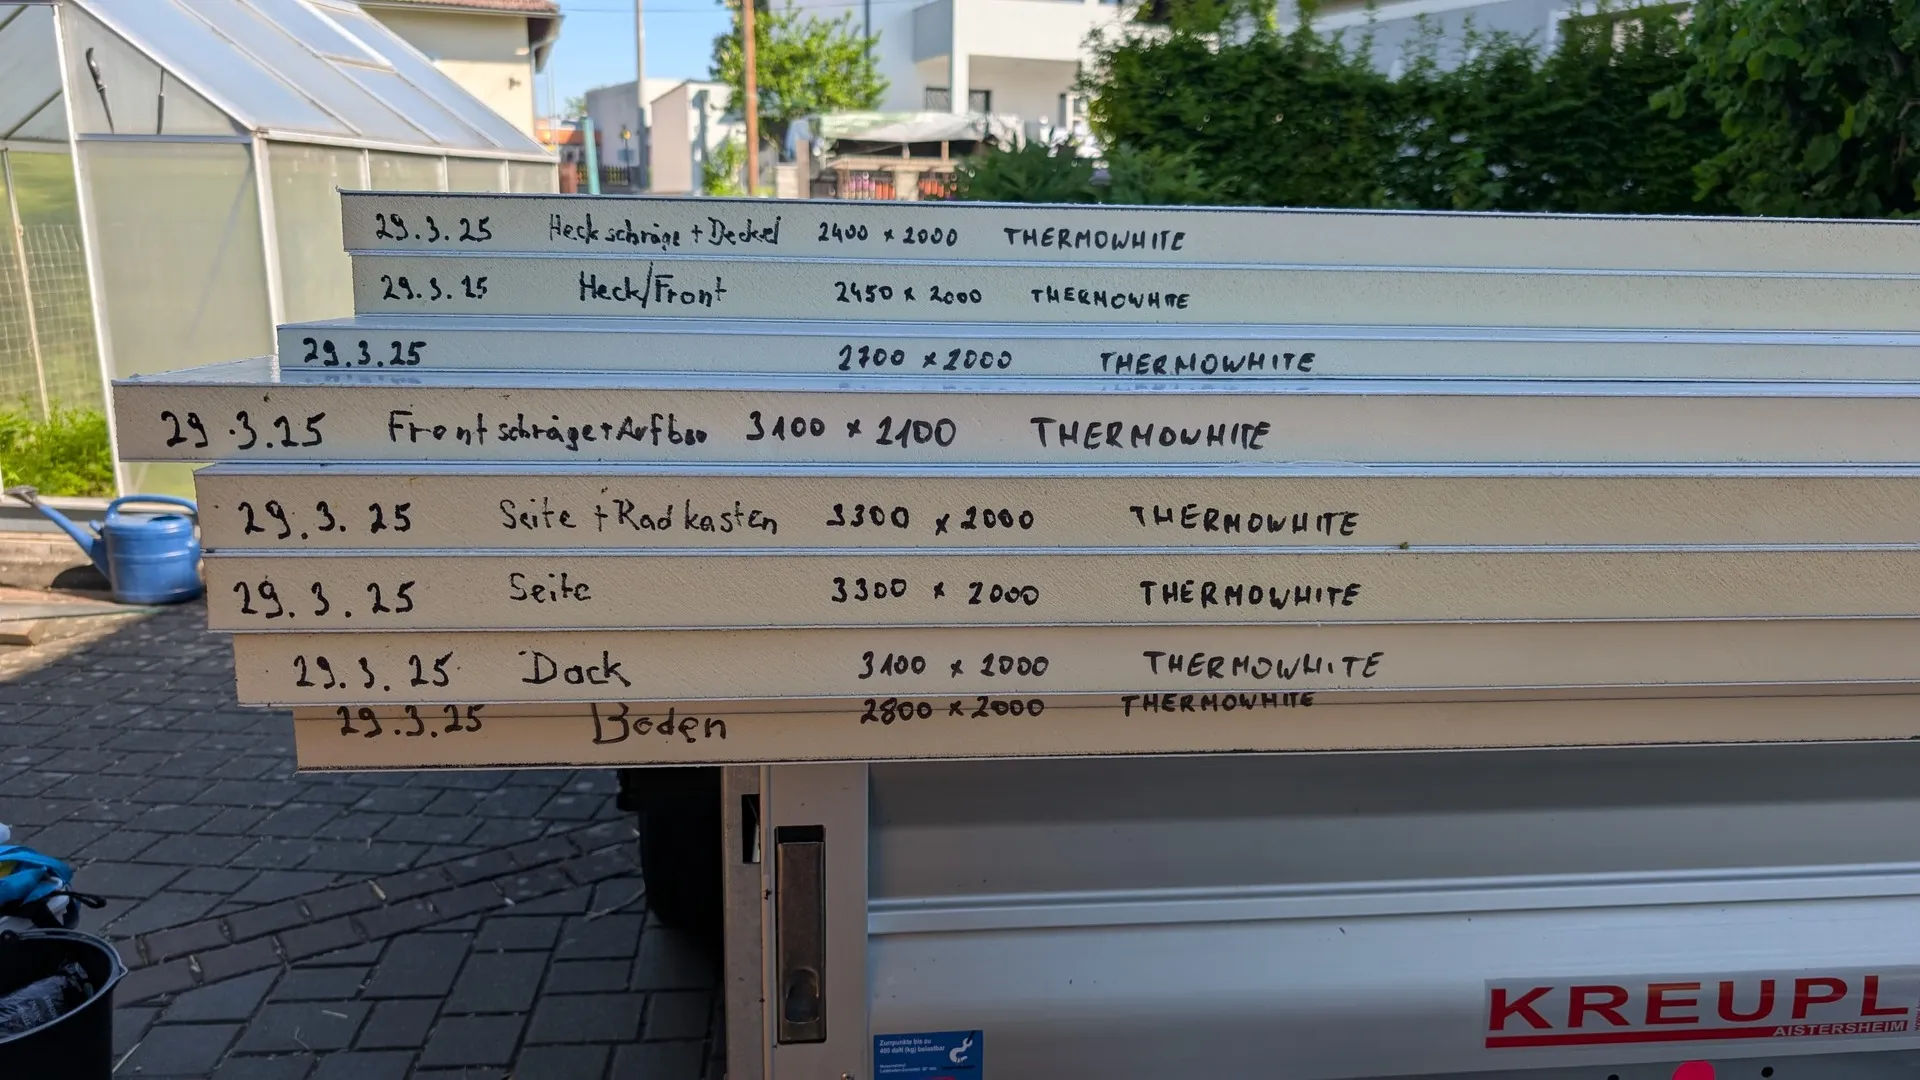 29.3.25 Heckschräge + Deckel 2400 x 2000 THERMOWHITE
29.3.25 Heck/Front 2450 x 2000 THERMOWHITE
29.3.25 2700 x 2000 THERMOWHITE
29.3.25 Frontschräge+Aufbau 3100 x 2100 THERMOWHITE
29.3.25 Seite + Radkasten 3300 x 2000 THERMOWHITE
29.3.25 Seite 3300 x 2000 THERMOWHITE
29.3.25 Dach 3100 x 2000 THERMOWHITE
29.3.25 Boden 2800 x 2000 THERMOWHITE
KREUPL
AISTERSHEIM
Zurrpunkte bis zu
400 daN (kg) belastbar